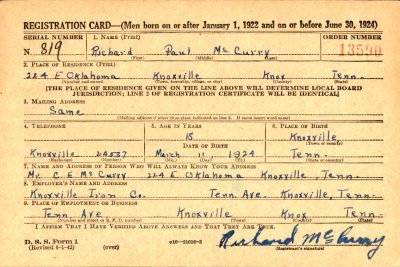 REGISTRATION CARD—(Men born on or after January 1, 1922 and on or before June 30, 1924)
SERIAL NUMBER 1. Name (Print) ORDER NUMBER
N 819 Richard Paul McCurry 13590
(First) (Middle) (Last)
2. Place of Residence (Print)
224 E Oklahoma Knoxville Knox Tenn.
(Number and street) (Town, township, village, or city) (County) (State)
[THE PLACE OF RESIDENCE GIVEN ON THE LINE ABOVE WILL DETERMINE LOCAL BOARD
JURISDICTION; LINE 2 OF REGISTRATION CERTIFICATE WILL BE IDENTICAL]
3. Mailing Address
Same
(Mailing address if other than place indicated on line 2. If same insert word same)
4. Telephone 5. Age in Years 6. Place of Birth
18 Knoxville,
Date of Birth (Town or county)
Knoxville 24537 March 11 1924 Tenn.
(Mo.) (Day) (Yr.) (State or country)
7. Name and Address of Person Who Will Always Know Your Address
Mr. C. E McCurry 224 E Oklahoma Knoxville, Tenn.
8. Employer's Name and Address
Knoxville Iron Co. Tenn Ave. Knoxville, Tenn.
9. Place of Employment or Business
Tenn. Ave Knoxville Knox Tenn
(Number and street or R. F. D. number) (Town) (County) (State)
I Affirm That I Have Verified Above Answers and That They Are True.
D. S. S. Form 1
(Revised 6-1-42) (over) Richard McCurry
(Registrant's signature)